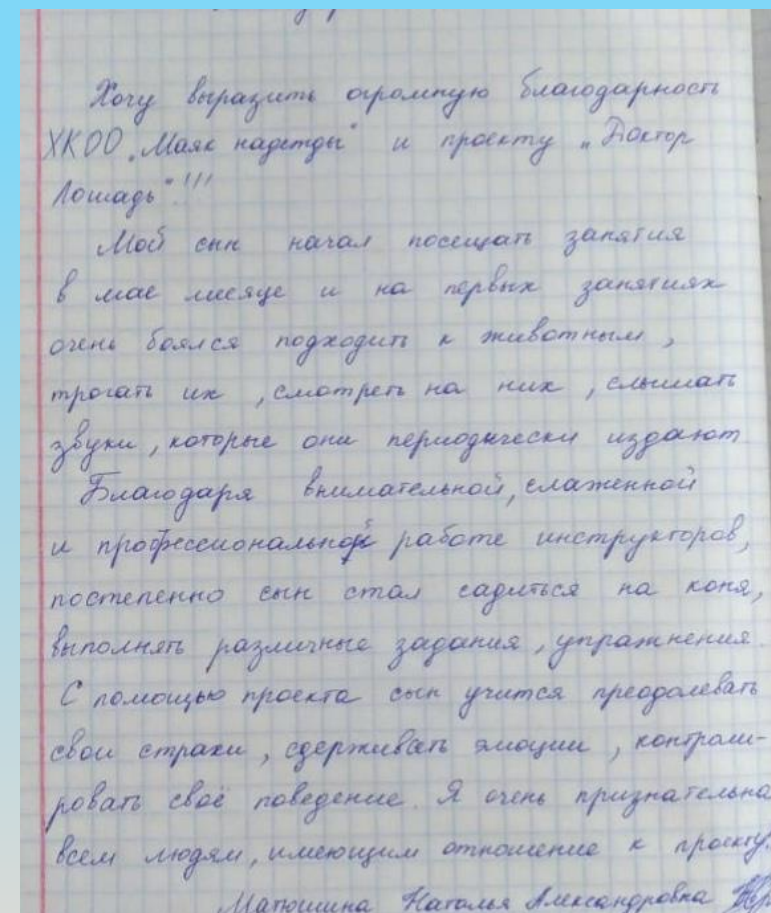 Хочу выразить огромную благодарность
ХКОО „Маяк надежды" и проекту „Доктор
Лошадь"!!!
Мой сын начал посещать занятия
в мае месяце и на первых занятиях
очень боялся подходить к животным,
трогать их, смотреть на них, слышать
звуки, которые они периодически издают
Благодаря внимательной, слаженной
и профессиональной работе инструкторов,
постепенно сын стал садиться на коня,
выполнять различные задания, упражнения.
С помощью проекта сын учится преодолевать
свои страхи, сдерживать эмоции, контроли-
ровать своё поведение. Я очень признательна
всем людям, имеющим отношение к проекту.
Матюшина Наталья Александровна